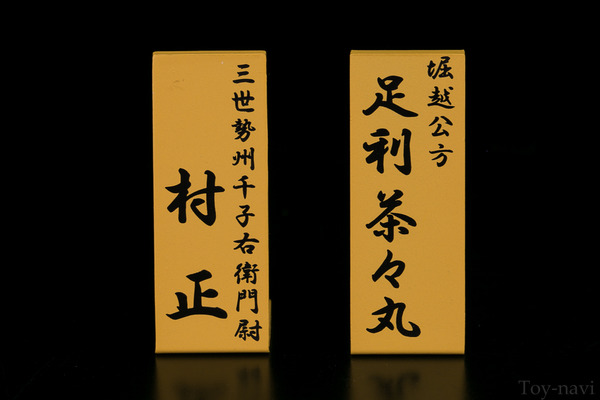 堀越公方
足利茶々丸
三世勢州千子右衛門尉
村正
Toy-navi